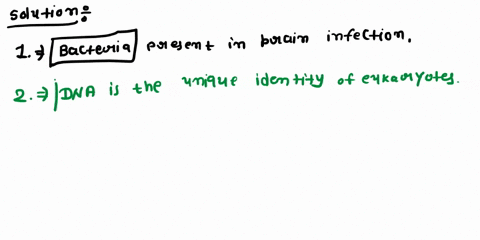 Solution:
1. ⇒ Bacteria present in brain infection.
2. ⇒ DNA is the unique identity of eukaryotes.